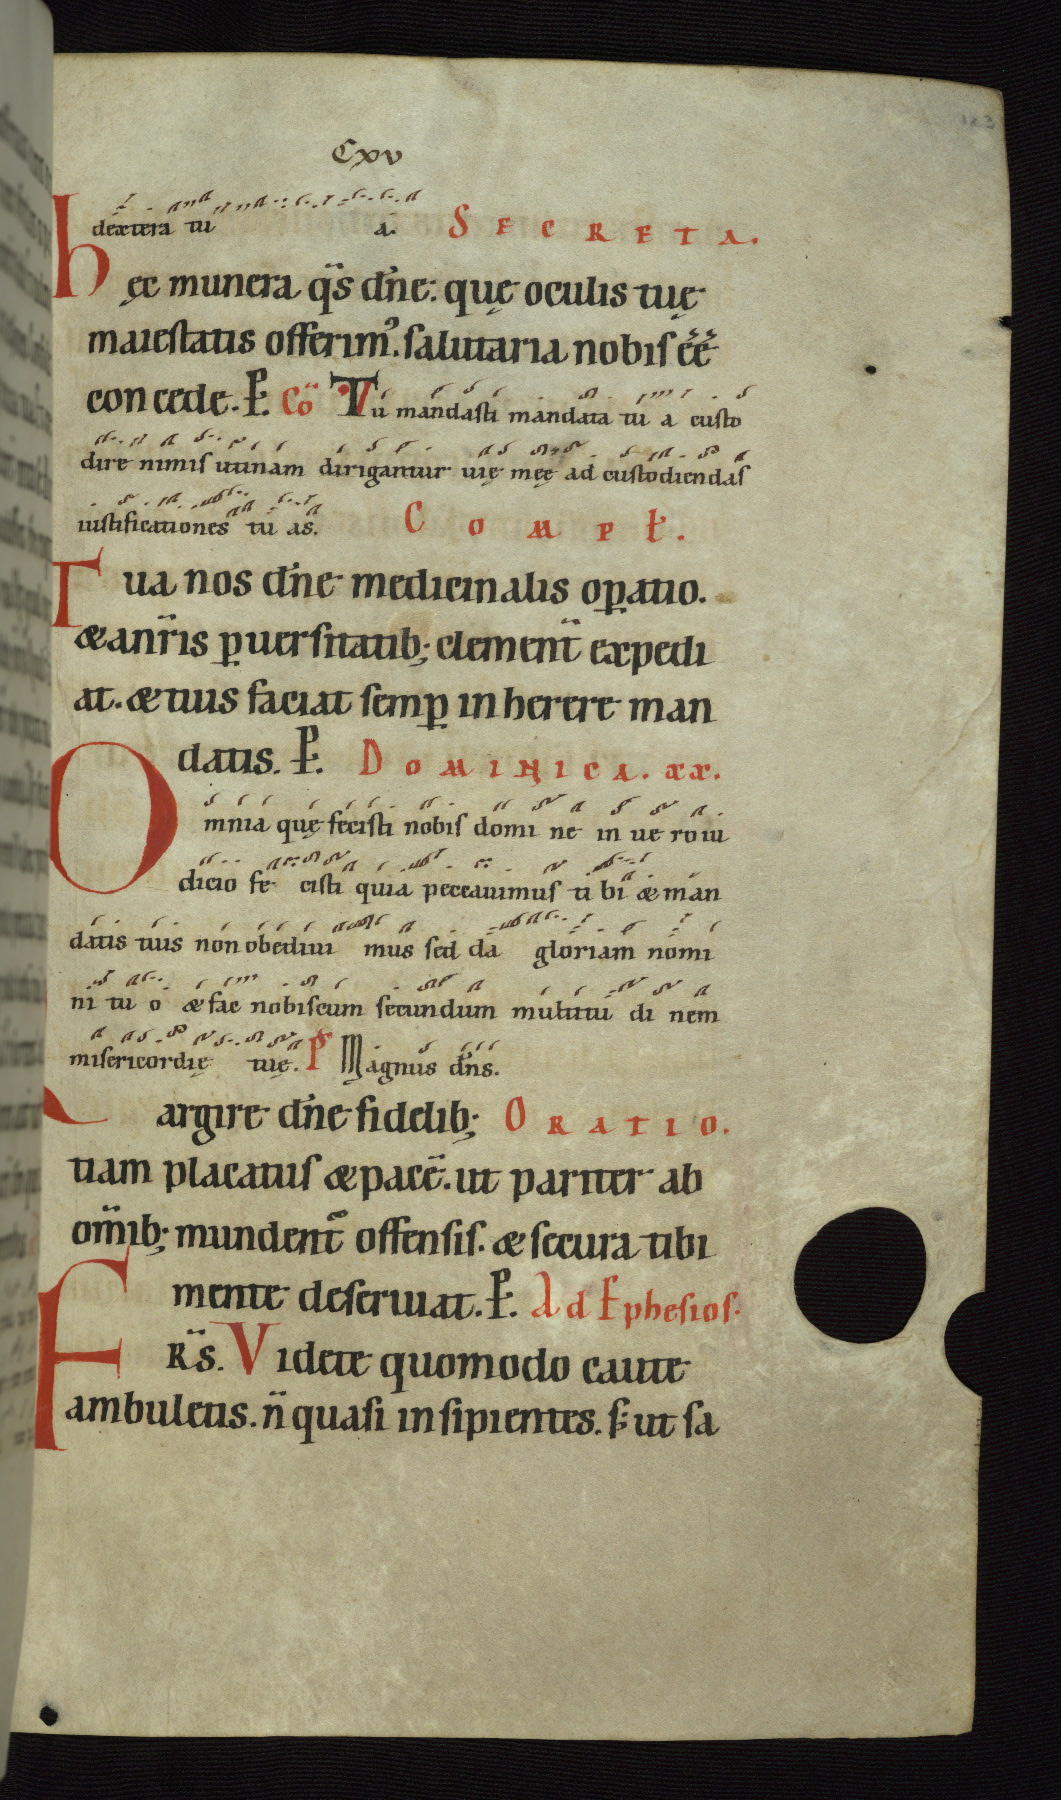 Cxv
dextera tu a. SECRETA.
hęc munera q̅s dn̅e: quę oculis tuę
maiestatis offerim᷒. salutaria nobis ee̅
concede. P. Co̅ Tu mandasti mandata tu a custo
dire nimis utinam dirigantur uię meę ad custodiendas
iustificationes tu as. COMPL̅.
Tua nos dn̅e medicinalis op̲atio.
& a nr̅is p̲uersitatib; clement̅ expedi
at. & tuis faciat semp̲ inherere man
datis. P. DOMINICA. xx.
Omnia quę fecisti nobis domi ne in ue ro iu
dicio fe cisti quia peccauimus ti bi & man
datis tuis non obediui mus sed da gloriam nomi
ni tu o & fac nobiscum secundum multitu di nem
misericordię tuę. P̅ Magnus dn̅s.
Largire dn̅e fidelib; ORATIO.
tiam placatus & pace̅. ut pariter ab
om̅ib; mundent̅ offensis. & secura tibi
mente deseruiat. P. Ad Ephesios.
FR̅S. Videte quomodo caute
ambuletis. n̅ quasi insipientes. s; ut sa